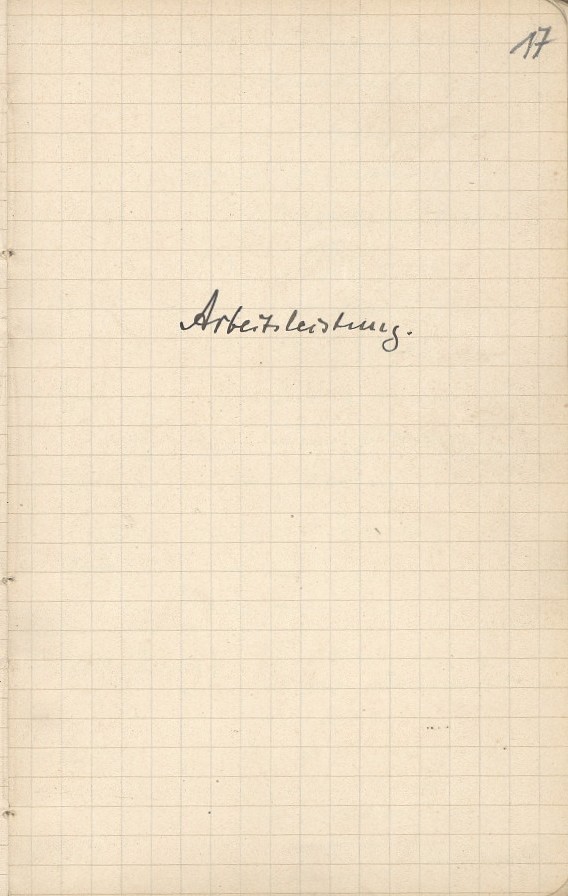 17
Arbeitsleistung.